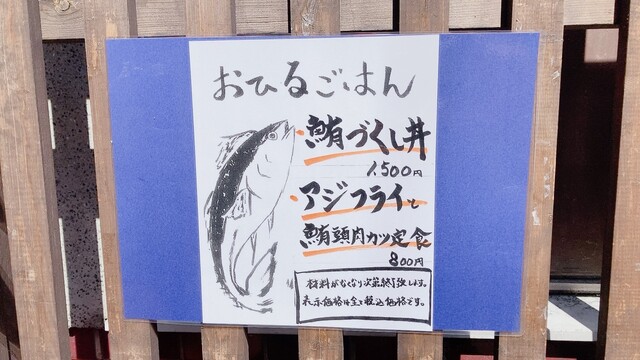 おひるごはん
鮪づくし丼
1,500円
アジフライと
鮪頭肉カツ定食
800円
材料がなくなり次第終了致します。
表示価格は全て税込価格です。